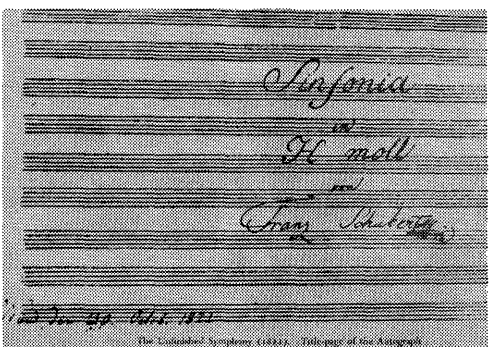 Sinfonia
in
H moll
von
Franz Schubert
den 30. Octob. 1822
The Unfinished Symphony (1822). Title-page of the Autograph